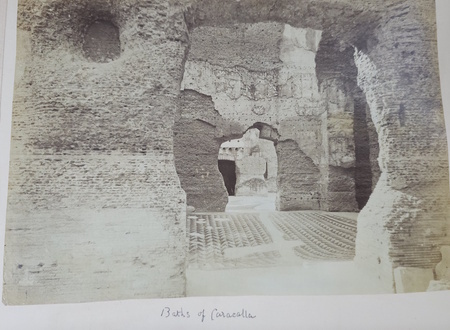 Baths of Caracalla